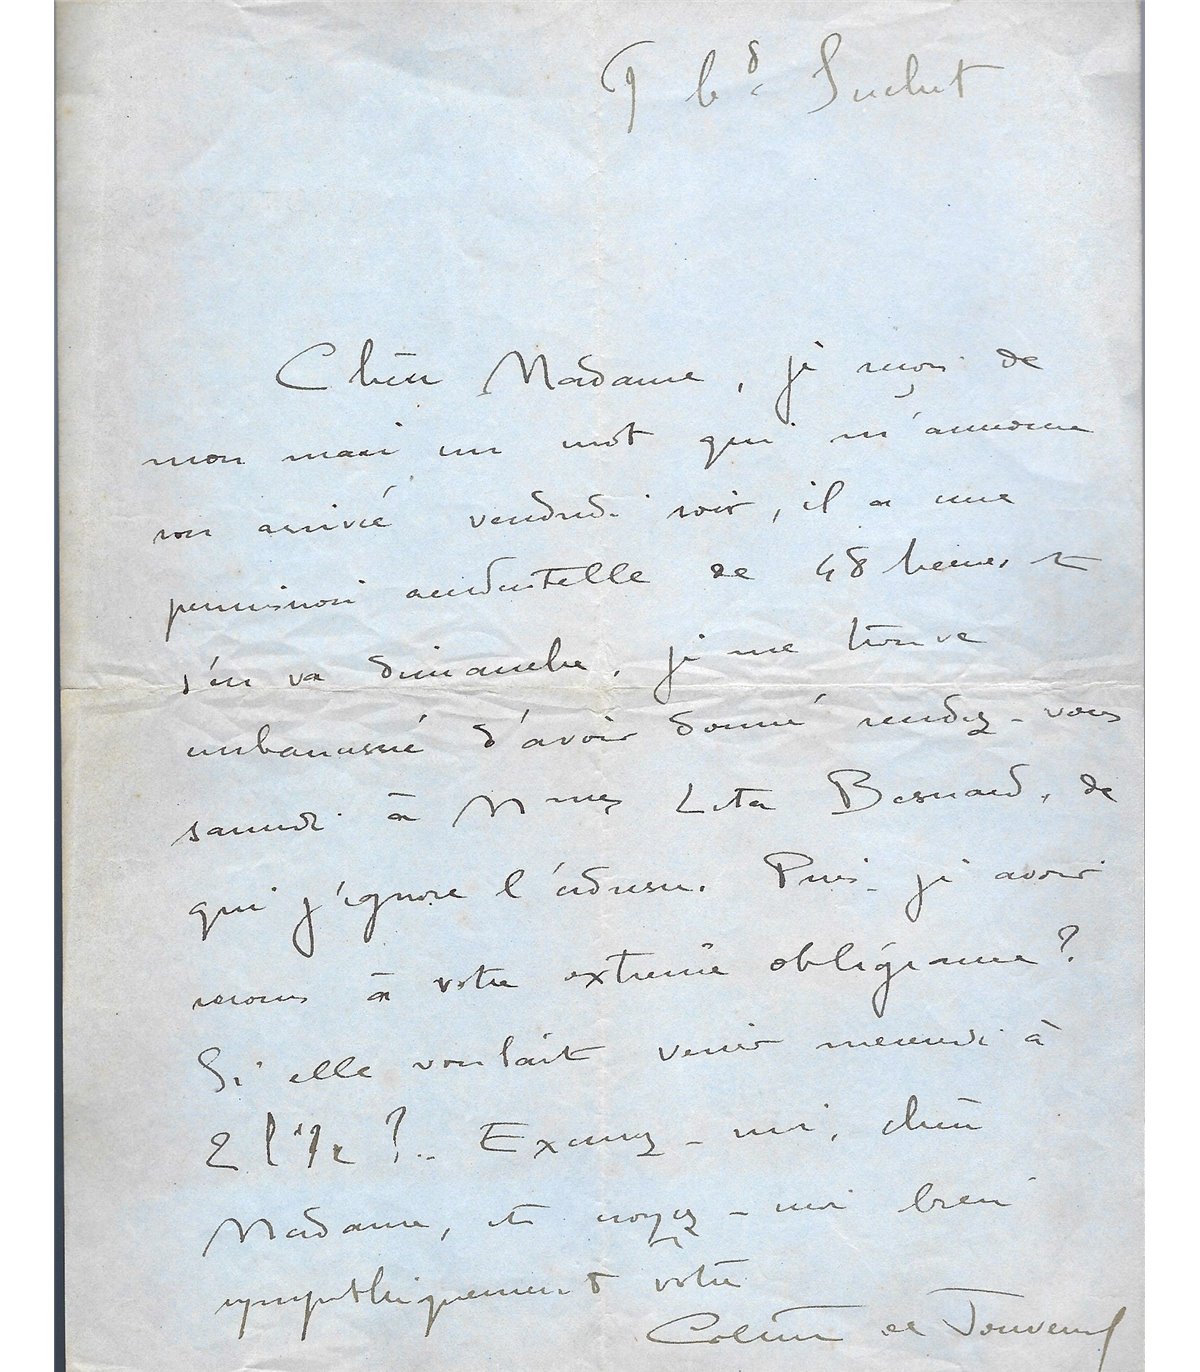 9 bd Suchet
Chère Madame, je reçois de
mon mari un mot qui m'annonce
son arrivée vendredi soir, il a une
permission accidentelle de 48 heures et
s'en va dimanche, je me trouve
embarrassée d'avoir donné rendez-vous
samedi à Mmes Lita Besnard, de
qui j'ignore l'adresse. Puis-je avoir
recours à votre extrême obligeance ?
Si elle voulait venir mercredi à
2 h 1/2 ?.. Excusez-moi, chère
Madame, et croyez-moi bien
sympathiquement vôtre
Colette de Jouvenel